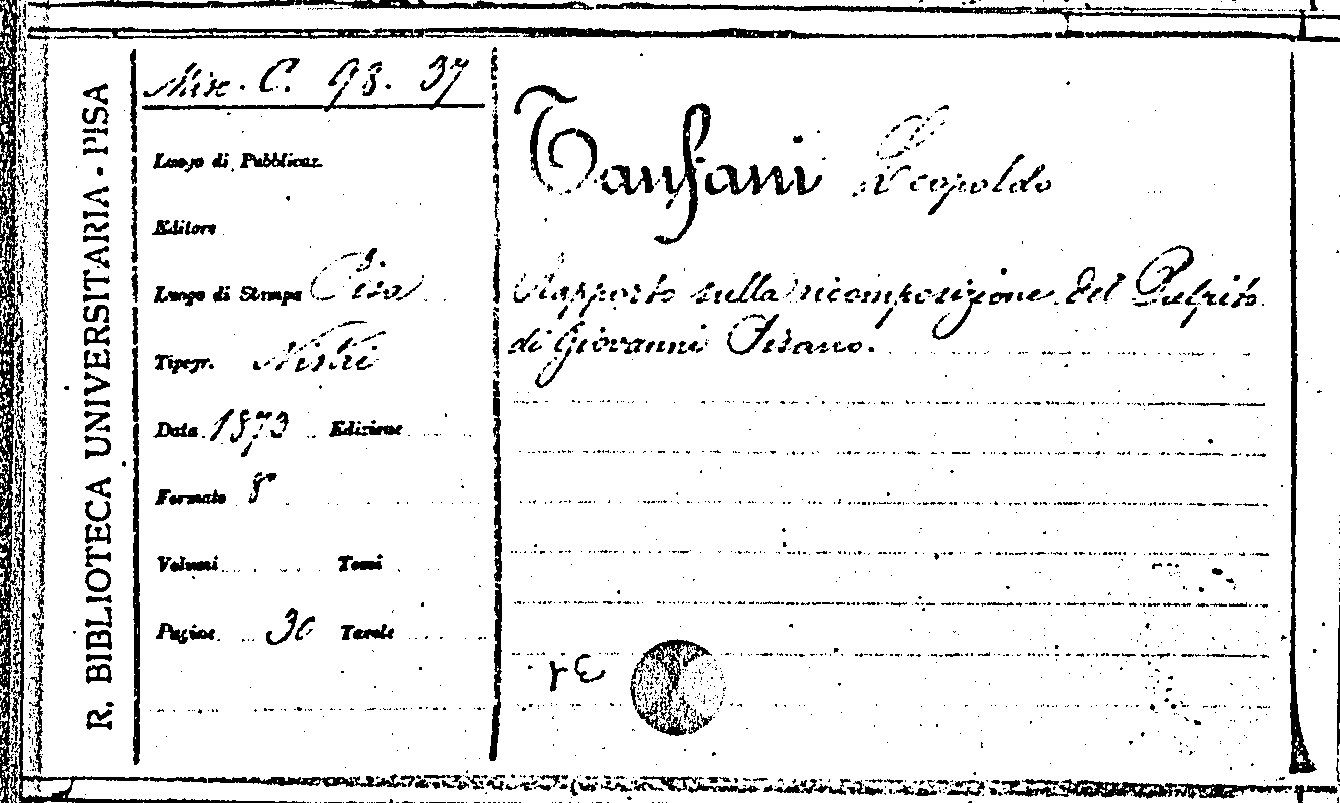 R. BIBLIOTECA UNIVERSITARIA - PISA
Misc. C. 98. 37
Luogo di Pubblicaz.
Editore
Luogo di Stampa Pisa
Tipogr. Nistri
Data 1873 Edizione
Formato 8°
Volumi Tomi
Pagine 30 Tavole
Tanfani Leopoldo
Rapporto sulla ricomposizione del Pulpito
di Giovanni Pisano.